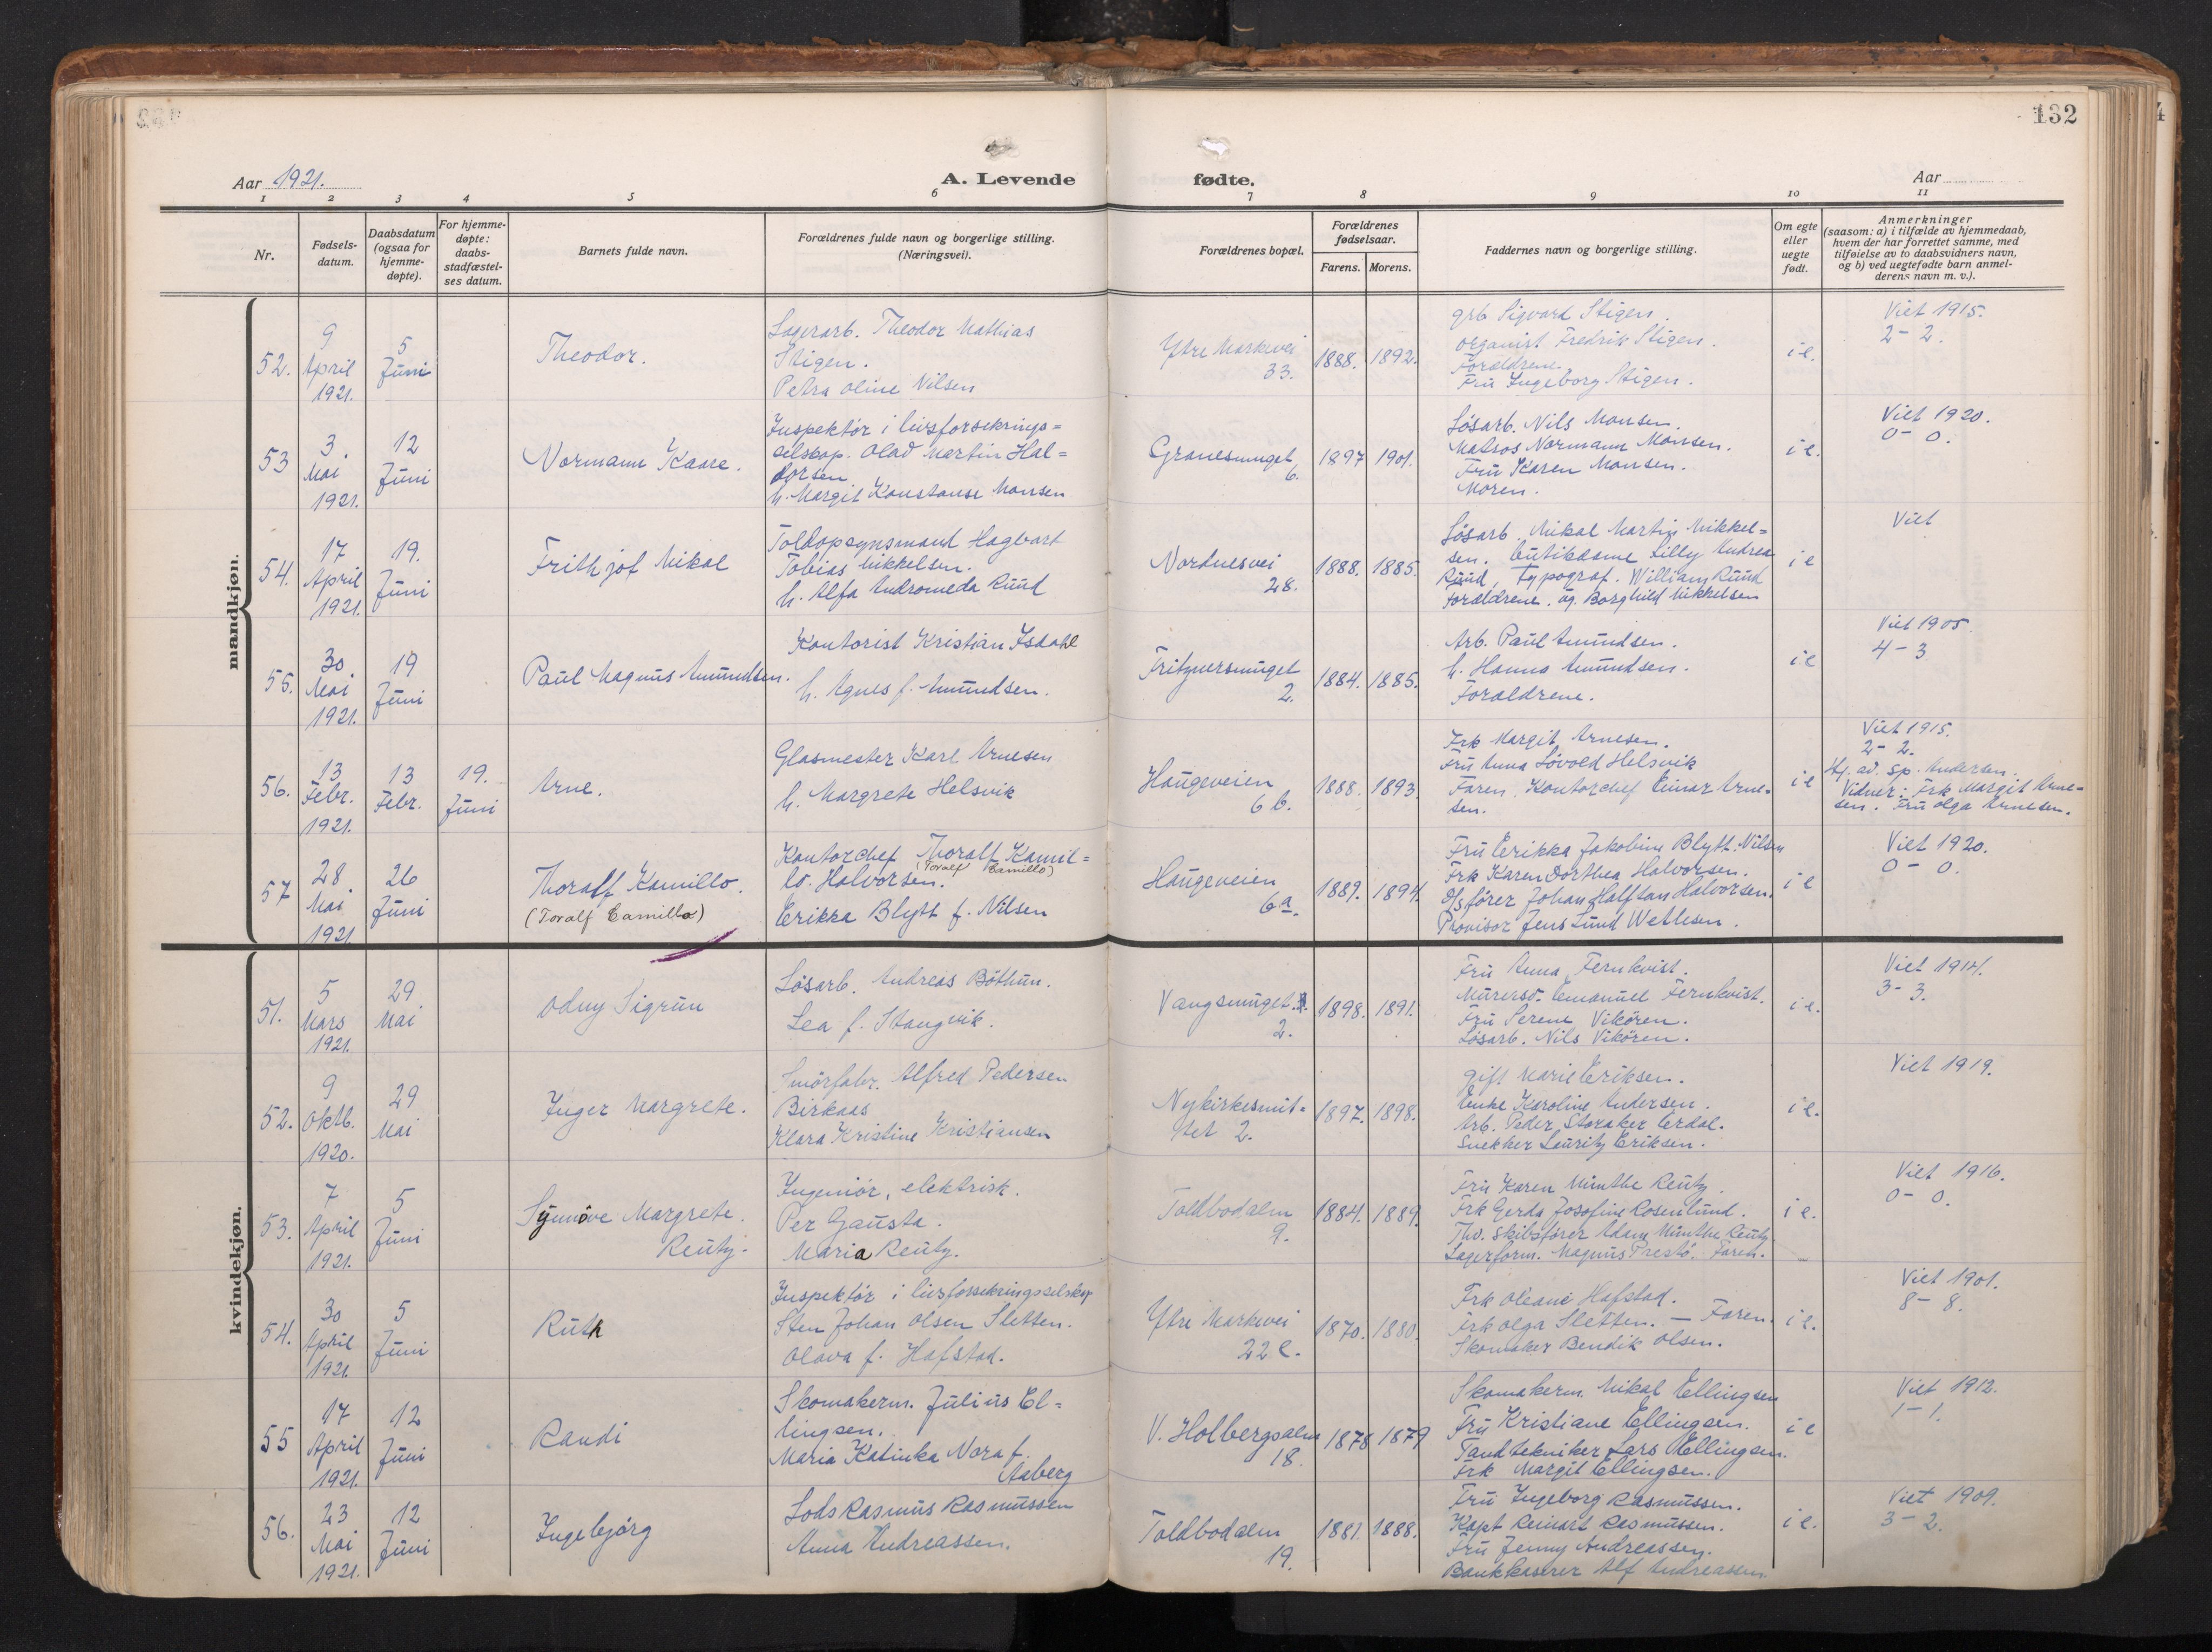 132
Aar 1921.
A. Levende fødte.
Aar
1 2 3 4 5 6 7 8 9 10 11
Nr.
Fødsels-
datum.
Daabsdatum
(ogsaa for
hjemme-
døpte).
For hjemme-
døpte:
daabs-
stadfæstel-
ses datum.
Barnets fulde navn.
Forældrenes fulde navn og borgerlige stilling.
(Næringsvei).
Forældrenes bopæl.
Forældrenes
fødselsaar.
Farens. Morens.
Faddernes navn og borgerlige stilling.
Om egte
eller
uegte
født.
Anmerkninger
(saasom: a) i tilfælde av hjemmedaab,
hvem der har forrettet samme, med
tilføielse av to daabsvidners navn,
og b) ved uegtefødte barn anmel-
derens navn m. v.).
mandkjøn.
52.
9
April
1921.
5
Juni
Theodor.
Lagerarb. Theodor Mathias
Stigen.
Petra Oline Nilsen
Ytre Markevei
33.
1888. 1892.
grb Sigvard Stigen.
organist Fredrik Stigen.
Forældrene.
Fru Ingeborg Stigen.
i e.
Viet 1915.
2 - 2.
53
3.
Mai
1921.
12
Juni
Normann Kaare.
Inspektör i livsforsikrings=
selskap. Olav Martin Hal=
vorsen
h. Margit Konstanse Monsen
Granesmuget
6.
1897 1901.
Løsarb. Nils Monsen.
Matros Normann Monsen.
Fru Karen Monsen.
Moren.
i e.
Viet 1920.
0 - 0.
54.
17
April
1921.
19.
Juni
Frithjof Mikal
Toldopsynsmand Hagbart
Tobias Mikkelsen.
h. Alfa Andromeda Ruud
Nordnesvei
28.
1888. 1885.
Løsarb. Mikal Martin Mikkel=
sen. Butikdame Lilly Andrea
Ruud, Typograf. William Ruud
Forældrene. og. Borghild Mikkelsen
i e
Viet
55.
30
Mai
1921.
19
Juni
Paul Magnus Amundsen.
Kontorist Kristian Isdahl
h. Agnes f. Amundsen.
Fritznersmuget
2.
1884. 1885.
Arb. Paul Amundsen.
h. Hanna Amundsen.
Forældrene.
i e
Viet 1905.
4 - 3
56.
13
Febr.
1921.
13
Febr.
19.
Juni
Arne.
Glasmester Karl Arnesen
h. Margrete Helsvik
Haugeveien
6 b.
1888. 1893.
Frk Margit Arnesen.
Fru Anna Løvold Helsvik
Faren. Kontorchef Einar Arne=
sen.
i e
Viet 1915.
2 - 2.
Hj. av. sp. Andersen.
Vidner: Frk Margit Arne=
sen. Fru Olga Arnesen.
57
28
Mai
1921
26
Juni
Thoralf Kamillo.
(Toralf Camillo)
Kontorchef Thoralf Kamil=
(Toralf Camillo)
lo. Halvorsen.
Erikka Blytt f. Nilsen
Haugeveien
6 a.
1889. 1894.
Fru Erikka Jakobine Blytt-Nilsen
Frk Karen Dorthea Halvorsen.
D/S fører Johan Halftan Halvorsen.
Provisor Jens Lund Wetlesen.
i e
Viet 1920.
0 - 0.
kvindekjøn.
51.
5
Mars
1921.
29
Mai
Odny Sigrun
Løsarb. Andreas Böthun.
Lea f. Stangvik.
Vangsmuget
2.
1898. 1891.
Fru Anna Fernkvist.
Murersv. Emanuel Fernkvist.
Fru Serene Vikören.
Løsarb. Nils Vikören.
i e.
Viet 1914.
3 - 3.
52.
9
Oktb.
1920.
29
Mai
Inger Margrete.
Smörfabr. Alfred Pedersen
Birkaas
Klara Kristine Kristiansen
Nykirkesmit=
tet 2.
1897. 1898.
gift Marie Eriksen.
Enke Karoline Andersen.
Arb. Peder Storaker Erdal.
Snekker Lauritz Eriksen.
i e.
Viet 1919.
53.
7
April
1921.
5
Juni
Synnöve Margrete
Reutz.
Ingeniör, elektrisk.
Per Gausta.
Maria Reutz.
Toldbodalm
9.
1884. 1889.
Fru Karen Münthe Reutz.
Frk Gerda Josefine Rosenlund.
Thv. Skibsfører Adam Münthe Reutz
Lagerform. Magnus Prestö. Faren.
i e.
Viet 1916.
0 - 0.
54.
30
April
1921.
5
Juni
Ruth
Inspektör i livsforsikringsselskap
Sten Johan Olsen Sletten.
Olava f. Hafstad.
Ytre Markevei
22 e.
1870. 1880.
Frk Oleane Hafstad.
Frk Olga Sletten. — Faren.
Skomaker Bendik Olsen.
i e.
Viet 1901.
8 - 8.
55
17
April
1921.
12
Juni
Randi
Skomakerm. Julius El=
lingsen.
Maria Katinka Nora f.
Aaberg
V. Holbergsalm
18.
1878 1879
Skomakerm. Mikal Ellingsen
Fru Kristiane Ellingsen.
Tandtekniker Lars Ellingsen.
Frk Margit Ellingsen.
i e
Viet 1912.
1 - 1.
56.
23
Mai
1921.
12
Juni
Ingebjörg
Lods Rasmus Rasmussen
Anna Andreassen.
Toldbodalm
19.
1881. 1888.
Fru Ingeborg Rasmussen.
Kapt Reinart Rasmussen.
Fru Jenny Andreassen.
Bankkaserer Alf Andreassen
i e.
Viet 1909.
3 - 2.